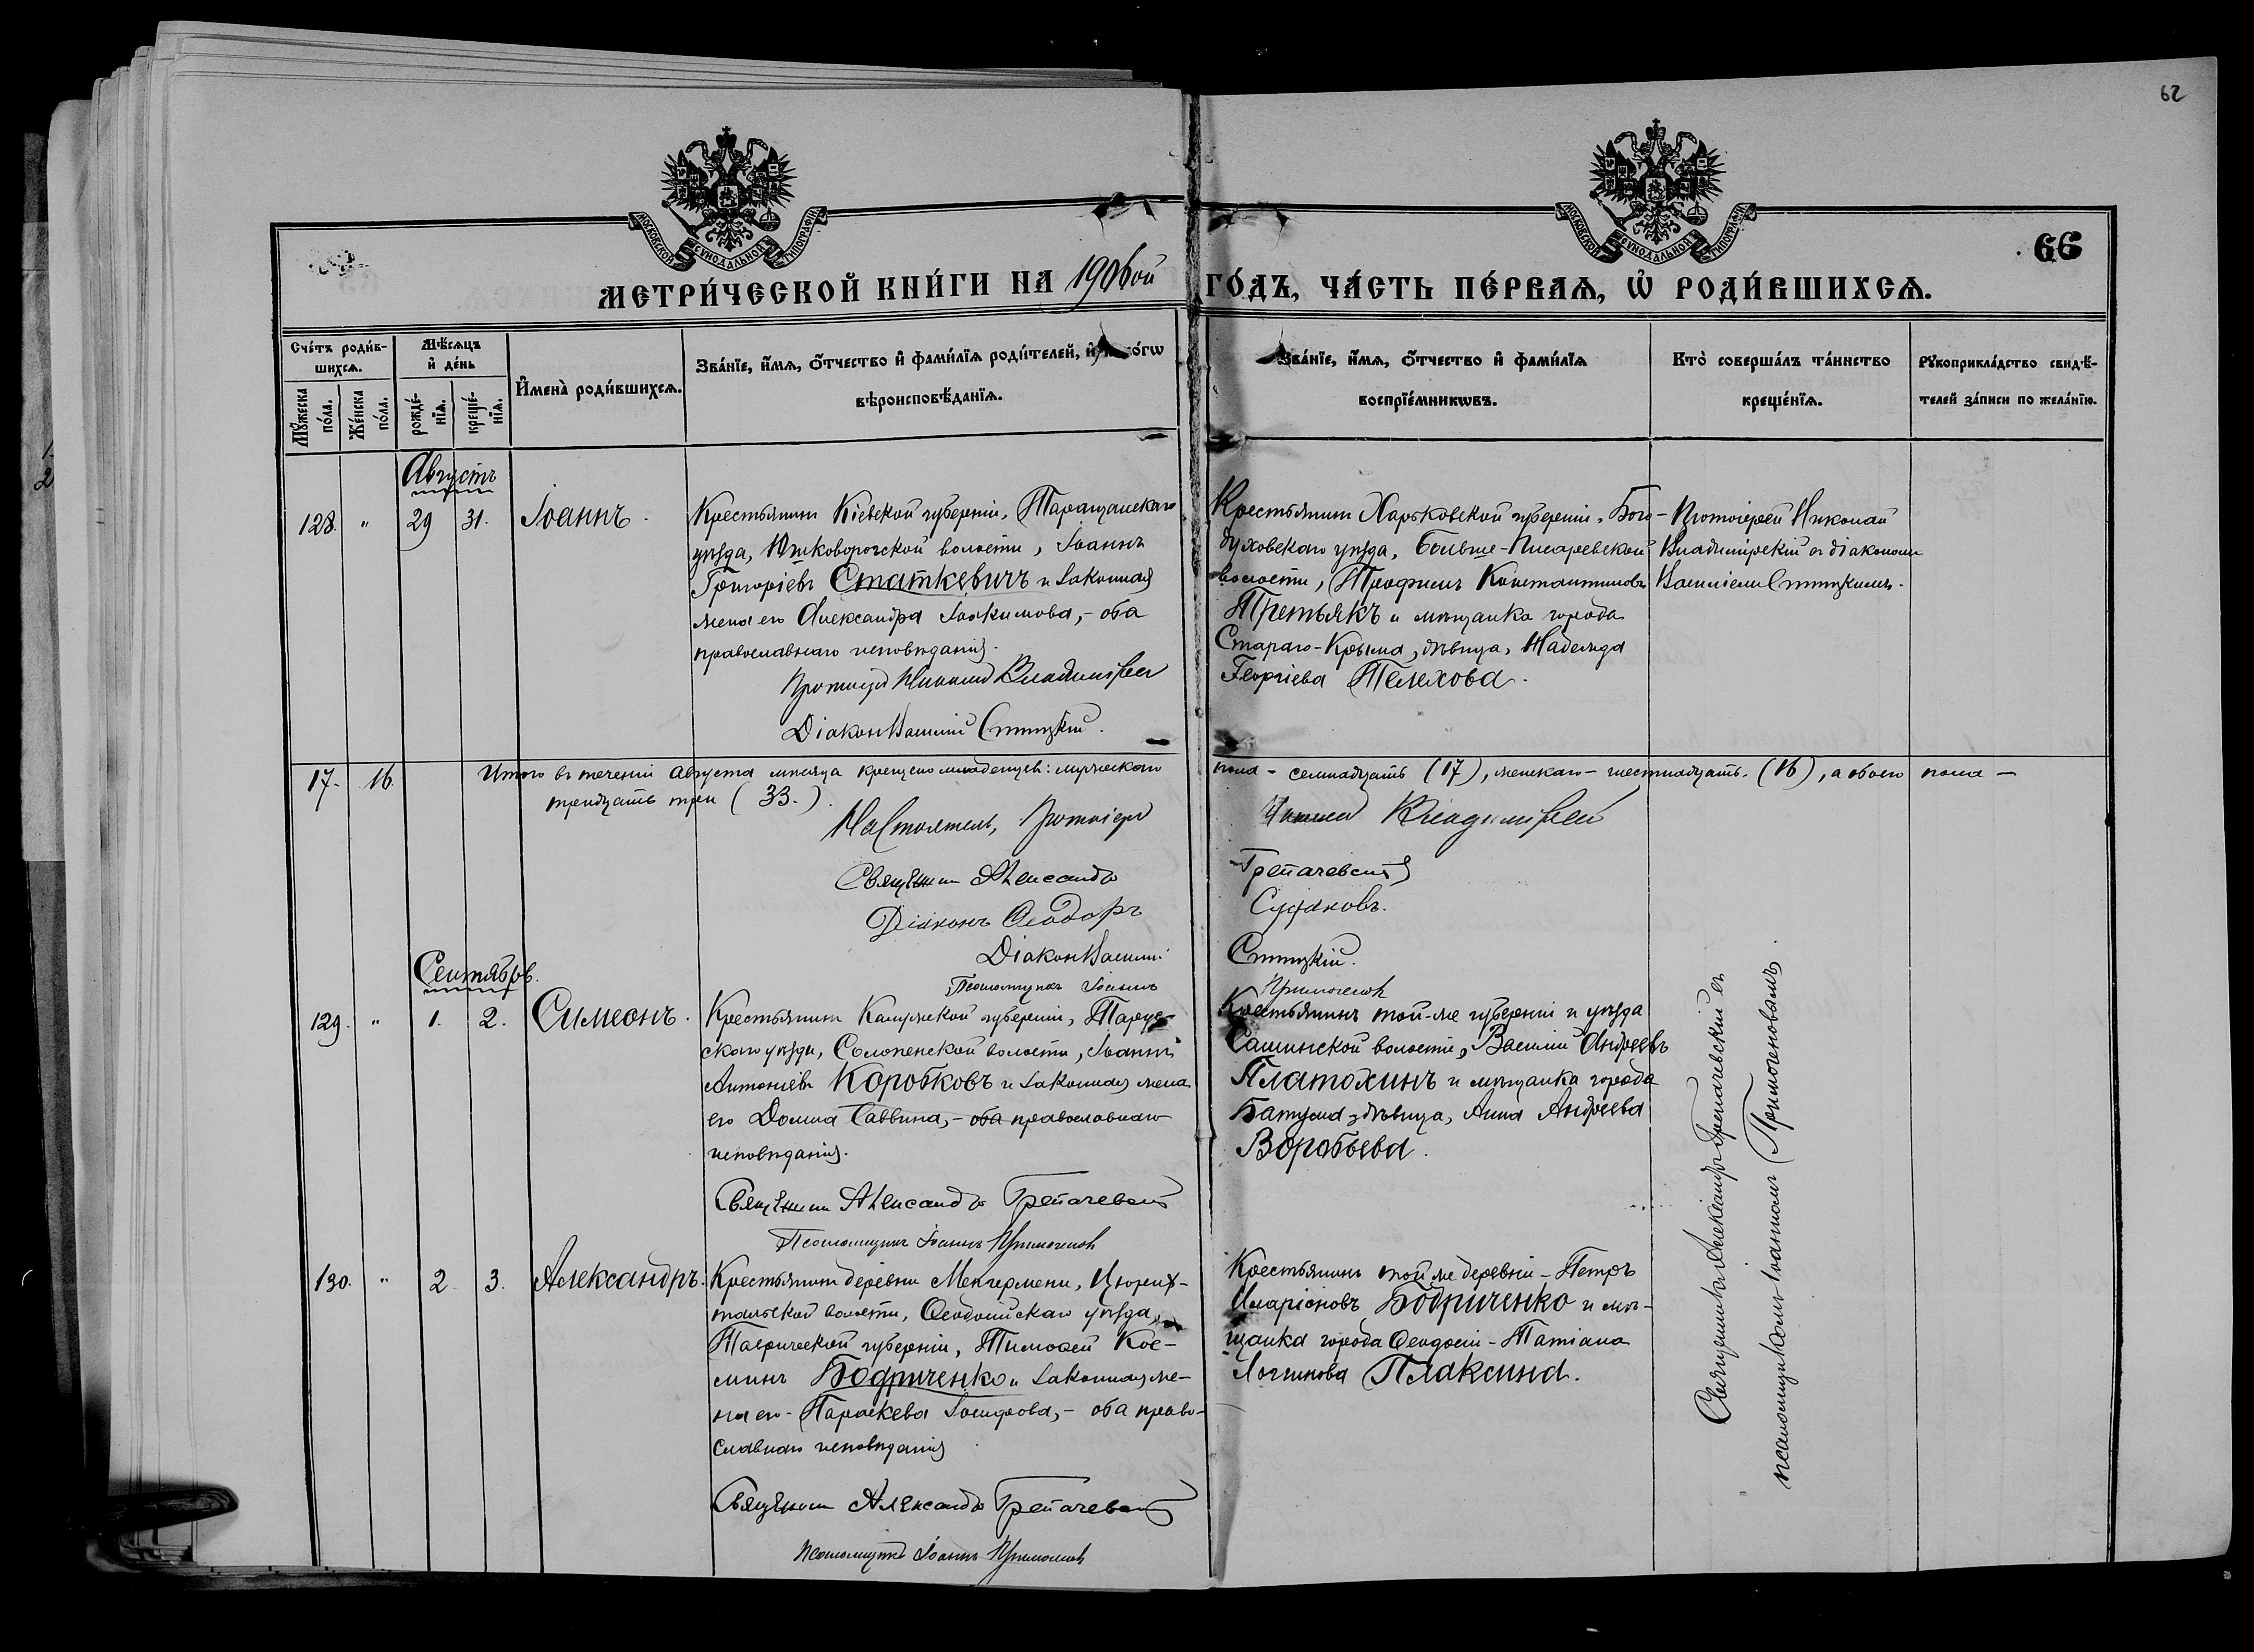 62
МОСКОВСКОЙ СѴНОДАЛЬНОЙ ТИПОГРАФІИ
МОСКОВСКОЙ СѴНОДАЛЬНОЙ ТИПОГРАФІИ
66
МЕТРИ́ЧЕСКОЙ КНИ́ГИ НА 1906ой ГО́ДЪ, ЧА́СТЬ ПЕ́РВАѦ, Ѡ҆ РОДИ́ВШИХСѦ.
Сче́тъ роди́в-
шихсѧ.
Мꙋ́жеска по́ла.
Же́нска по́ла.
Мѣ́сѧцъ
и҆ де́нь
рожде́-
нїѧ.
креще́-
нїѧ.
И҆мена̀ роди́вшихсѧ.
Зва́нїе, и҆́мѧ, ѻ҆́тчество и҆ фами́лїѧ роди́телей, и҆
вѣроисповѣ́данїѧ.
Зва́нїе, и҆́мѧ, ѻ҆́тчество и҆ фами́лїѧ
воспрїе́мникѡвъ.
Кто̀ соверша́лъ та́инство
креще́нїѧ.
Рꙋкоприкла́дство свидѣ́-
телей за́писи по жела́нїю.
Августъ
128. " 29 31. Іоаннъ.
Крестьянинъ Кіевской губерніи, Таращанскаго
уѣзда, волости, Іоаннъ
Григоріевъ Статкевичъ и законная
жена его Александра Іоакимова, - оба
православнаго исповѣданія.
Протоіерей Николай Владимірскій
Діаконъ Василій
Крестьянинъ Харьковской губерніи, Бого-
духовскаго уѣзда, Больше-Писаревской
волости, Трофимъ Константиновъ
Третьякъ и мѣщанка города
Стараго-Крыма, дѣвица, Надежда
Георгіева Телехова.
Протоіерей Николай
Владимірскій съ діакономъ
Василіемъ
17. 16. Итого въ теченіи Августа мѣсяца крещено младенцевъ: мужескаго пола - семнадцать (17), женскаго - шестнадцать (16), а обоего пола -
тридцать три (33.).
Настоятель, Протоіерей Николай Владимірскій
Священникъ Александръ Грепачевскій
Діаконъ Ѳеодоръ Судаковъ.
Діаконъ Василій
Псаломщикъ Іоаннъ Примогеновъ
Сентябрь.
129. " 1. 2. Симеонъ.
Крестьянинъ Калужской губерніи, Тарус-
скаго уѣзда, Солопенской волости, Іоаннъ
Антоніевъ Коробковъ и законная жена
его Домна Саввина, - оба православнаго
исповѣданія.
Священникъ Александръ Грепачевскій
Псаломщикъ Іоаннъ Примогеновъ
Крестьянинъ той-же губерніи и уѣзда
Сашинской волости, Василій Андреевъ
Платохинъ и мѣщанка города
Батума, дѣвица, Анна Андреева
Воробьева.
130. " 2 3. Александръ.
Крестьянинъ деревни Менгермени, Цюрих-
тальской волости, Ѳеодосійскаго уѣзда,
Таврической губерніи, Тимофей Кос-
минъ Бодриченко и законная же-
на его - Параскева Іосифова, - оба право-
славнаго исповѣданія
Священникъ Александръ Грепачевскій
Псаломщикъ Іоаннъ Примогеновъ
Крестьянинъ той же деревни - Петръ
Иларіоновъ Бодриченко и мѣ-
щанка города Ѳеодосіи - Татіана
Логинова Плаксина.
Священникъ Александръ Грепачевскій съ
псаломщикомъ Іоанномъ Примогеновымъ.